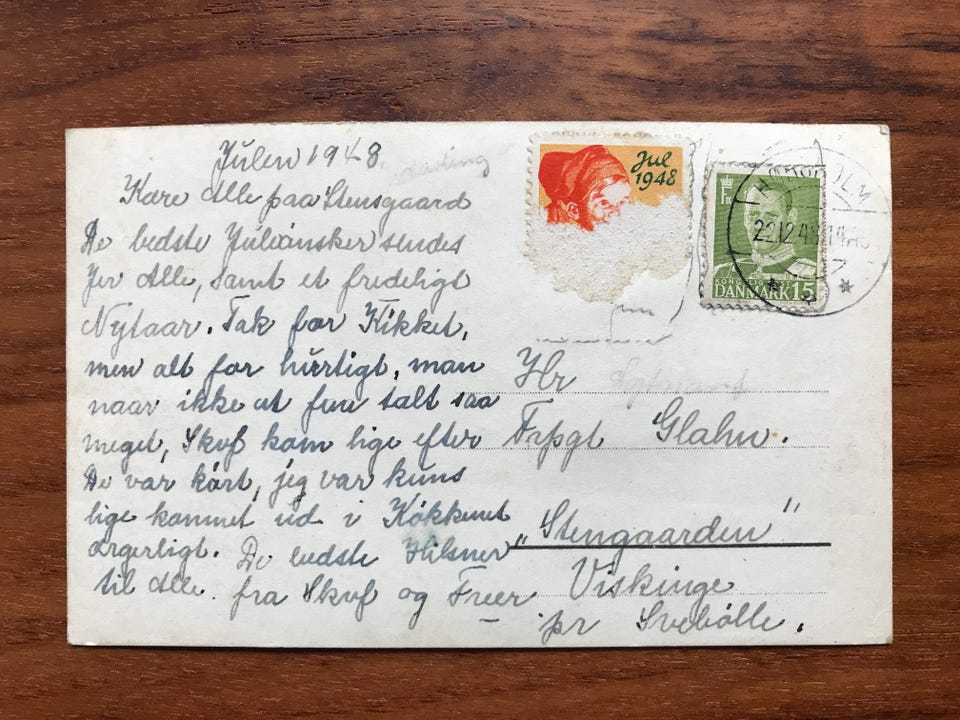 Julen 1948
Kære Alle paa Stensgaard
De bedste Juleønsker sendes
Jer Alle, samt et fredeligt
Nytaar. Tak for Kikket,
men alt for hurrtigt, man
naar ikke at faa talt saa
meget, Skof kom lige efter
De var kørt, jeg var kuns
lige kommet ud i Køkkenet
ærgerligt. De bedste Hilsner
til Alle. fra Skof og
Jul
1948
22.12.48 14
DANMARK 15
Hr
Glahn.
"Stengaarden"
Viskinge
pr Svebølle.